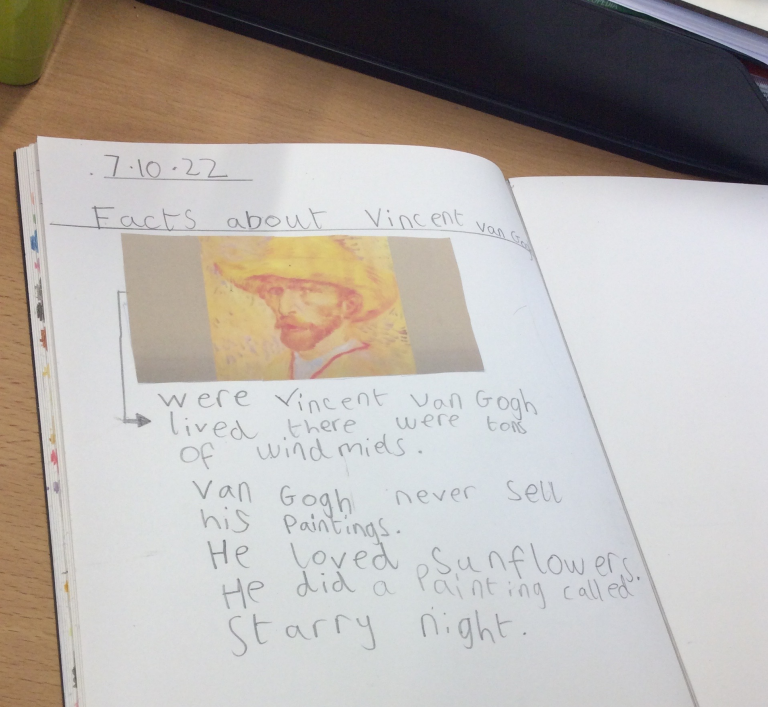 .7.10.22
Facts about Vincent van Gogh
were Vincent van Gogh
lived there were tons
of windmiels.
Van Gogh never sell
his paintings.
He loved sunflowers.
He did a painting called
Starry night.